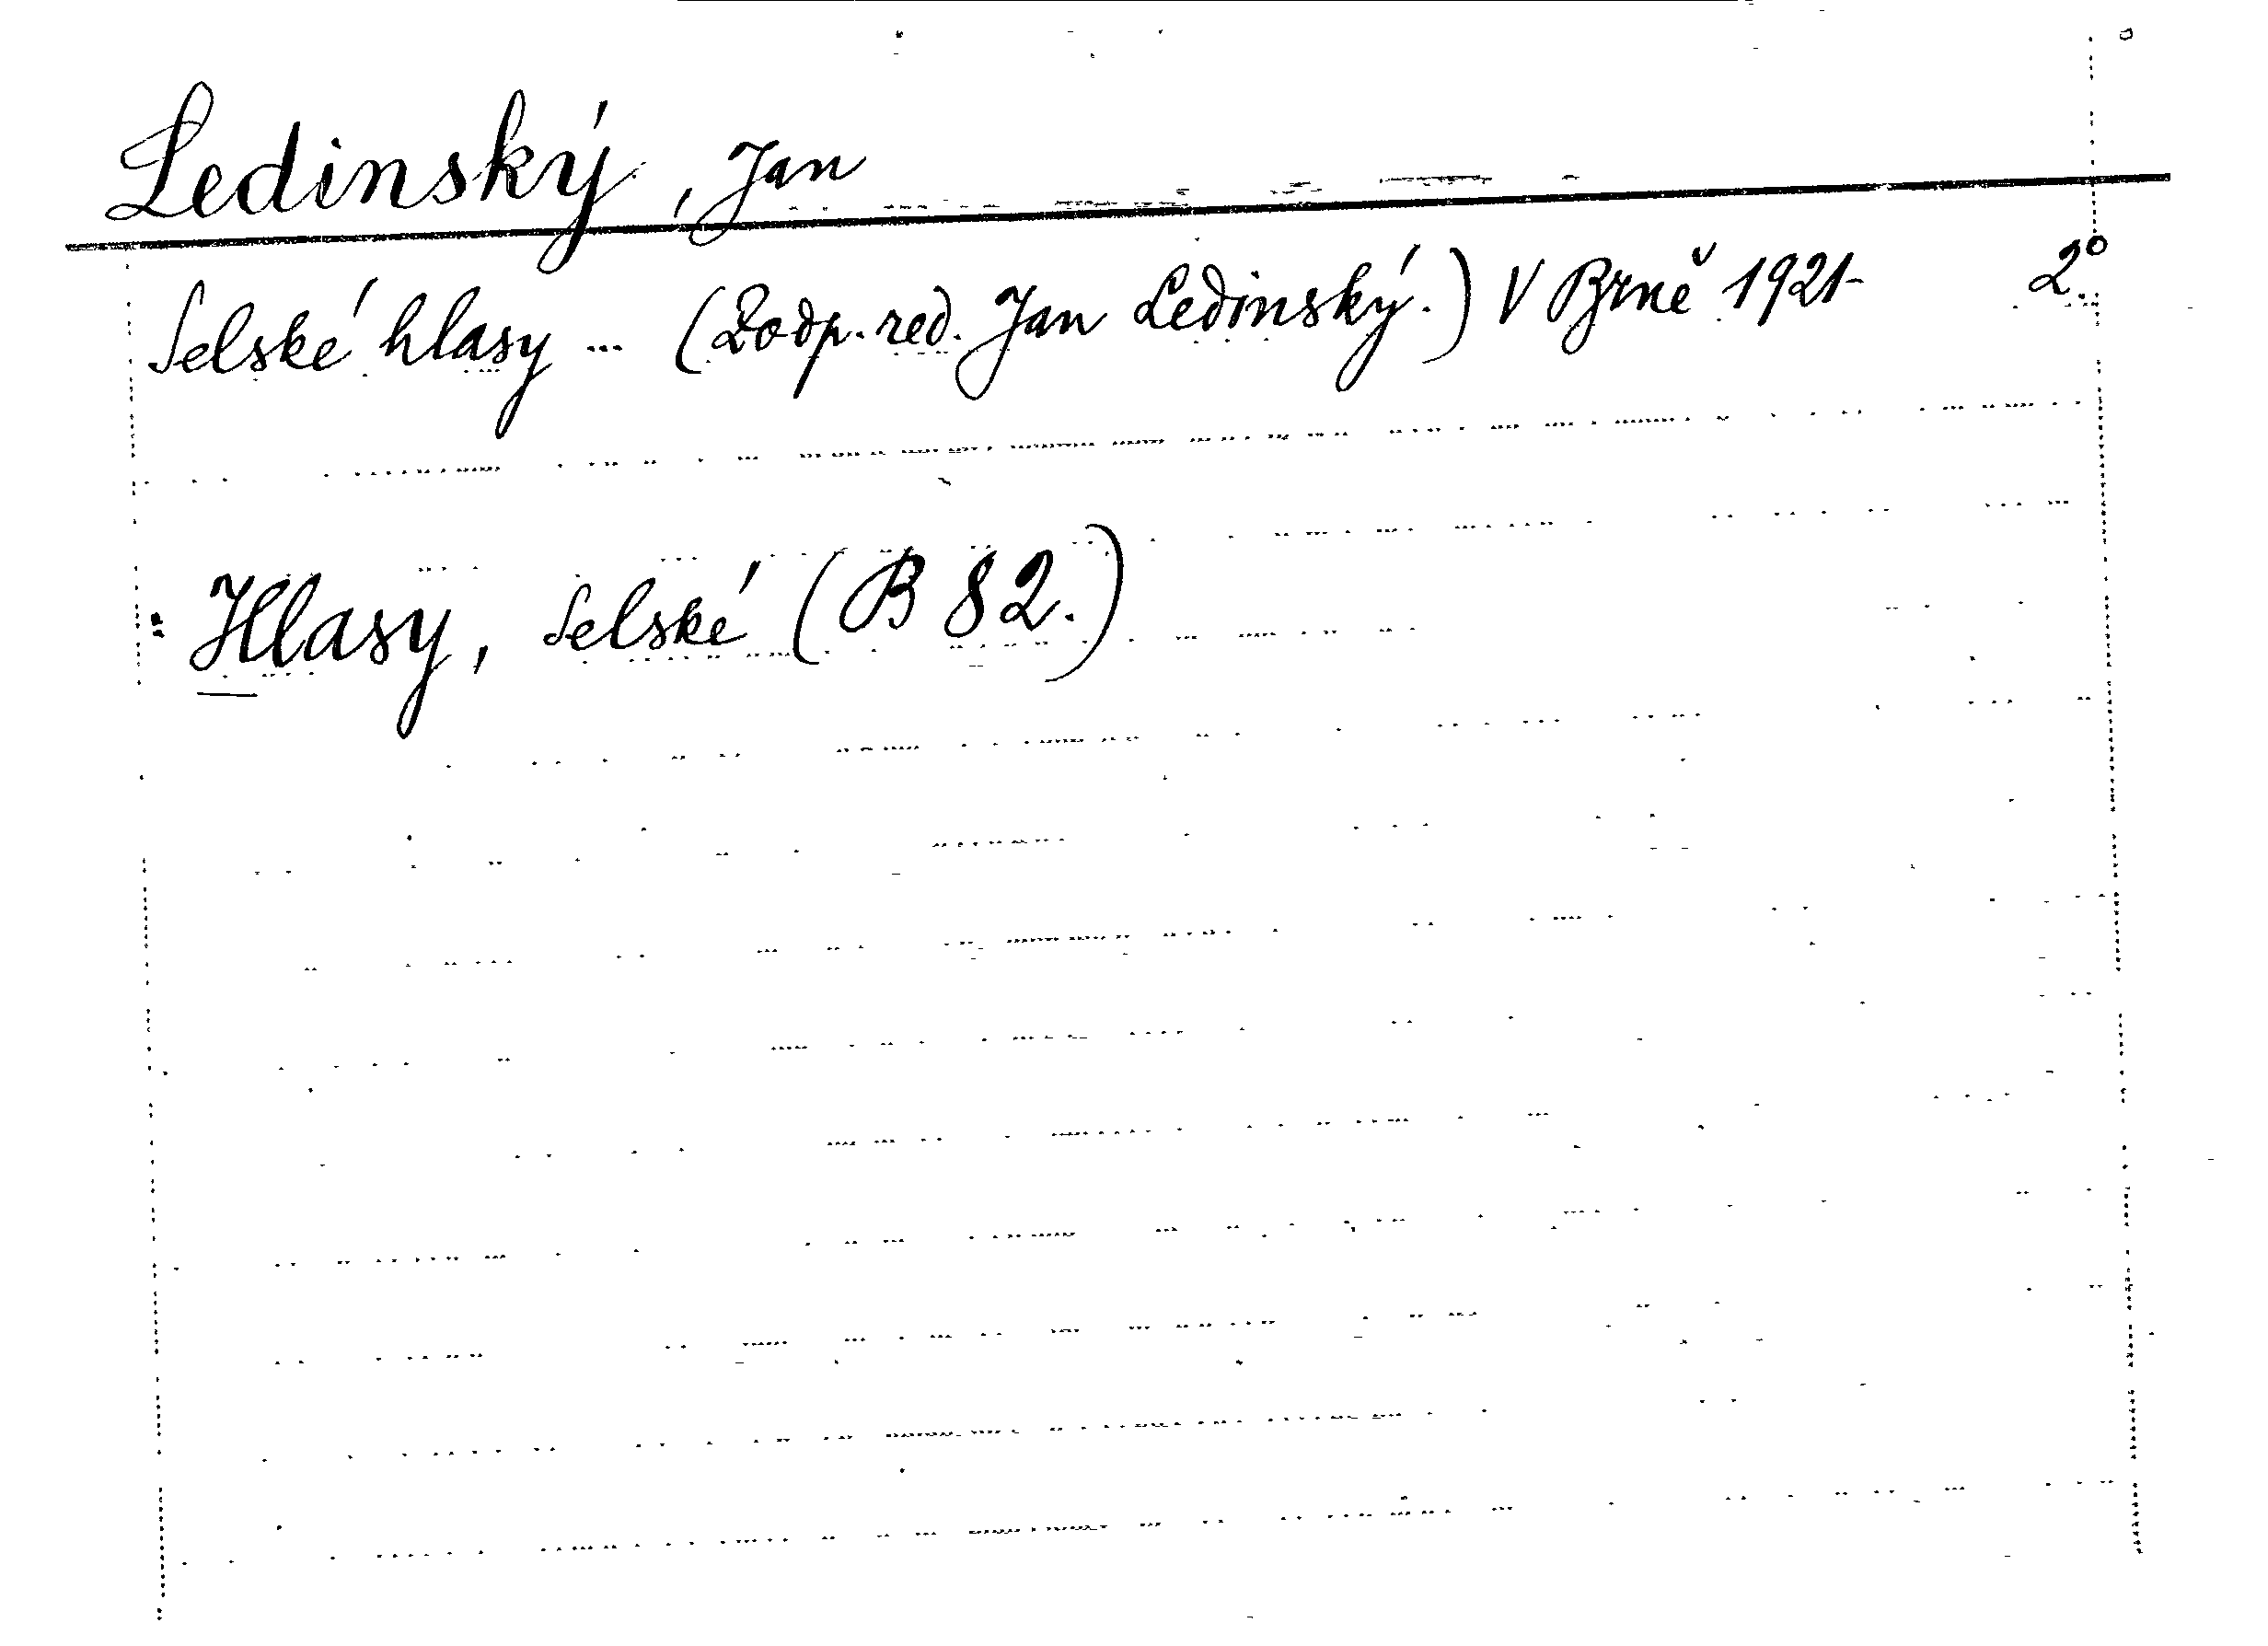 Ledinský, Jan
Selské hlasy ... (Zodp. red. Jan Ledinský.) V Brně 1921- 2°
Hlasy, selské (B 82.)